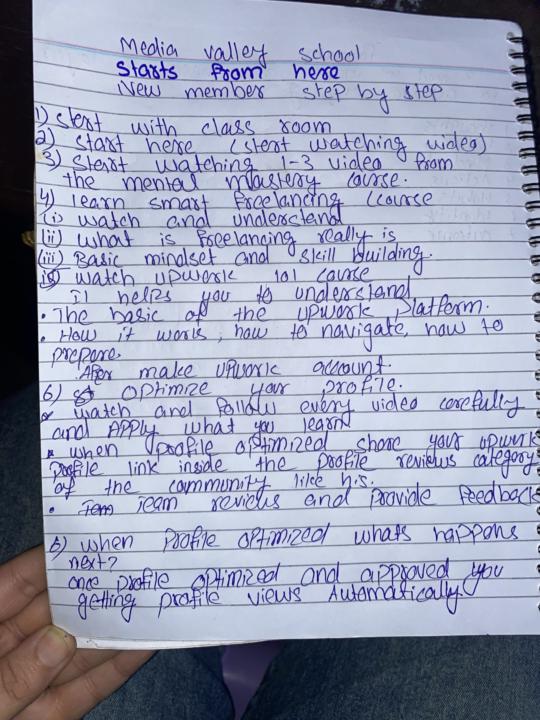 Media valley school
Starts from here
New member step by step
1) start with class room
2) start here (start watching video)
3) Start watching 1-3 video from
the mental mastery course.
4) learn smart freelancing (course
(i) watch and understand
(ii) what is freelancing really is
(iii) Basic mindset and skill building.
watch upwork 101 course
It helps you to understand
• The basic of the upwork Platform.
• How it works, how to navigate, how to
prepare.
After make upwork account.
6) optimize your profile.
* watch and follow every video carefully
and APPly what you learn
* when profile optimized share your upwork
profile link inside the profile reviews category
of the community like his.
• Tem Team reviews and provide feedback
6) when Profile optimized whats happens
next?
once profile optimized and approved you
getting profile views Automatically